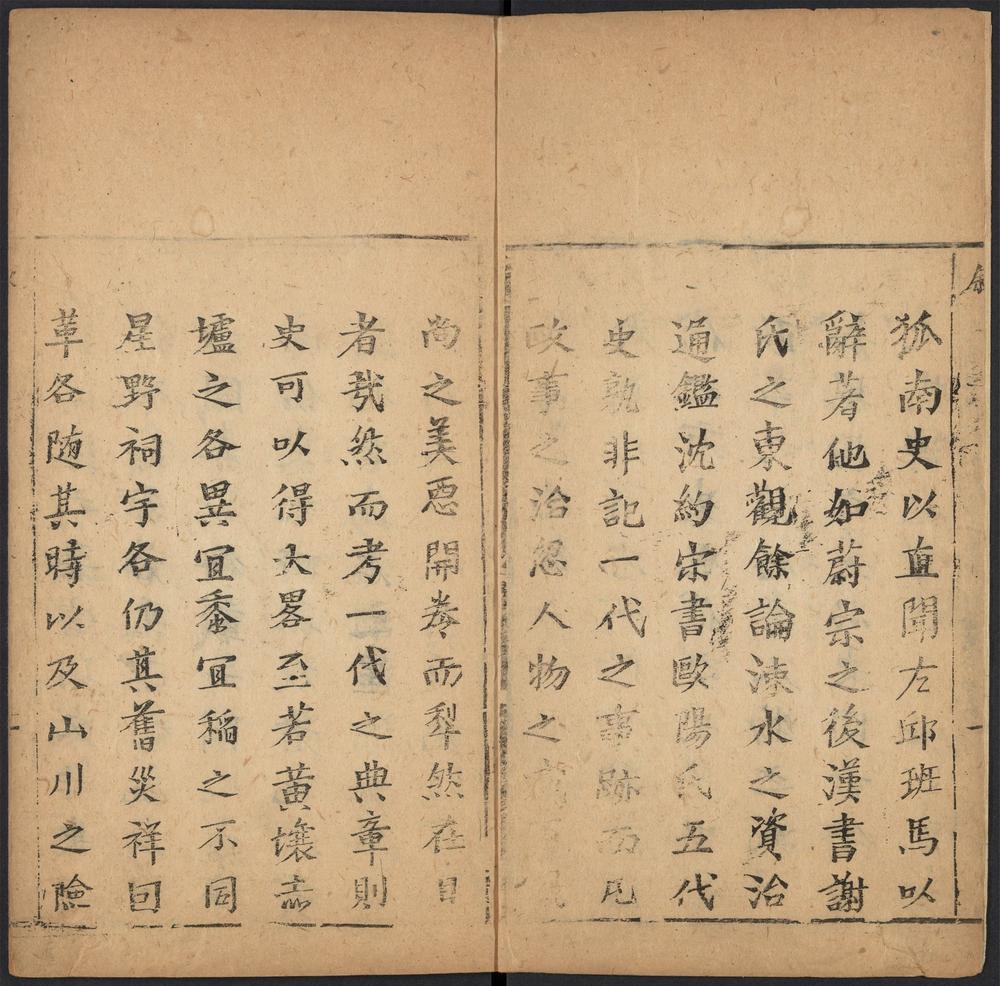 狐南史以直聞左邱班馬以
辭著他如蔚宗之後漢書謝
氏之東觀餘論涑水之資治
通鑑沈約宋書歐陽氏五代
史孰非記一代之事跡而凡
政事之治忽人物之
尚之美惡開卷而犂然在目
者哉然而考一代之典章則
史可以得大畧至若黃壤赤
壚之各異宜黍宜稲之不同
星野祠宇各仍其舊災祥回
革各随其時以及山川之險